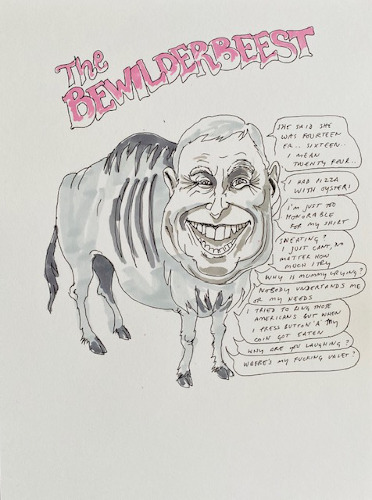 The
BEWILDERBEEST
SHE SAID SHE
WAS FOURTEEN
ER... SIXTEEN..
I MEAN
TWENTY FOUR..
I HAD PIZZA
WITH OYSTERS
I'M JUST TOO
HONORABLE
FOR MY SHIRT
SWEATING?
I JUST CAN'T, NO
MATTER HOW
MUCH I TRY
WHY IS MUMMY CRYING?
NOBODY UNDERSTANDS ME
OR MY NEEDS
I TRIED TO RING THOSE
AMERICANS BUT WHEN
I PRESS BUTTON 'A' MY
COIN GOT EATEN
WHY ARE YOU LAUGHING?
WHERE'S MY FUCKING VALET?